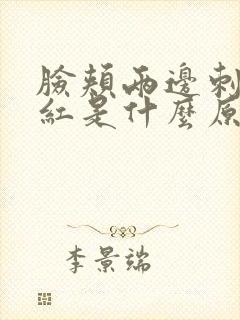 臉頰兩邊刺
紅是什麼原
李景端